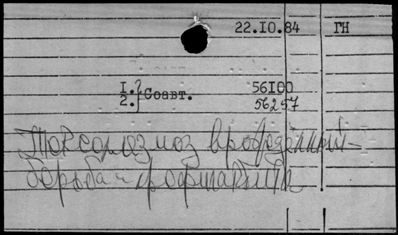 22.IO.84 ГН
I.} Соавт. 56I00
2. 56257
Токсоплазмоз врожденный-
борьба и профилактика